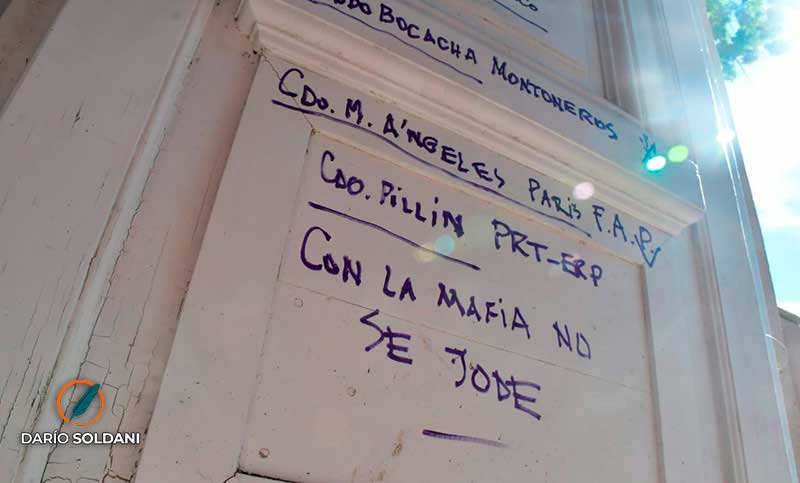 BOCACHA MONTONEROS
CDO. M. ÁNGELES PARIS F.A.P.
CDO. PILLÍN PRT-ERP
CON LA MAFIA NO
SE JODE
DARÍO SOLDANI